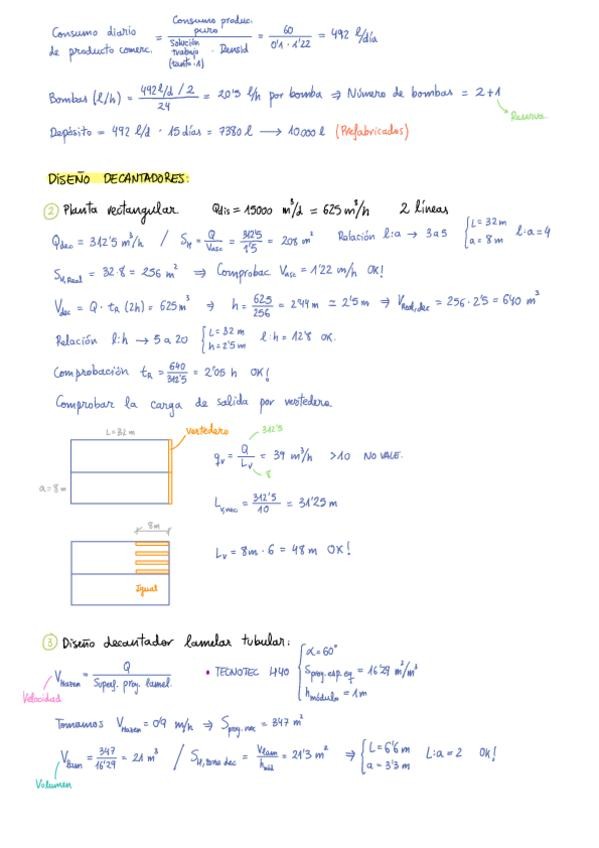 Consumo diario de producto comerc. = Consumo produc. puro / Solución trabajo (tanto·1) · Densid = 60 / 0'1 · 1'22 = 492 l/día
Bombas (l/h) = 492 l/d / 2 / 24 = 20'5 l/h por bomba ⇒ Número de bombas = 2+1
Reserva
Depósito = 492 l/d · 15 días = 7380 l → 10000 l (Prefabricados)
DISEÑO DECANTADORES:
② Planta rectangular Qdis = 15000 m³/d = 625 m³/h 2 líneas
Qdec = 312'5 m³/h / SH = Q/Vasc = 312'5/1'5 = 208 m² Relación l:a → 3 a 5 { L = 32 m a = 8 m l:a = 4
SH,Real = 32·8 = 256 m² ⇒ Comprobac Vasc = 1'22 m/h OK!
Vdec = Q · tR (2h) = 625 m³ ⇒ h = 625/256 = 2'44 m ≃ 2'5 m ⇒ VReal,dec = 256·2'5 = 640 m³
Relación l:h → 5 a 20 { L = 32 m h = 2'5 m l:h = 12'8 OK.
Comprobación tR = 640/312'5 = 2'05 h OK!
Comprobar la carga de salida por vertedero.
L=32 m
vertedero
a=8 m
312'5
qv = Q/Lv = 39 m³/h >10 NO VALE.
8
Lv,nec = 312'5/10 = 31'25 m
8m
Igual
Lv = 8m · 6 = 48 m OK!
③ Diseño decantador lamelar tubular:
VHazen = Q / Superf. proy. lamel. • TECNOTEC H40 { α = 60° Sproy.esp.eq = 16'29 m²/m³ hmódulo = 1m
Velocidad
Tomamos VHazen = 0'9 m/h ⇒ Sproy.nec = 347 m²
Vlam = 347/16'29 = 21 m³ / SH,zona dec = Vlam/hmód = 21'3 m² ⇒ { L = 6'6 m a = 3'3 m L:a = 2 OK!
Volumen